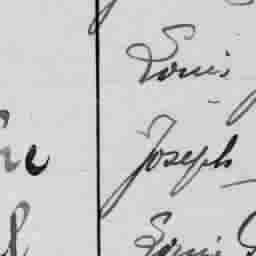 Louis
Joseph
Louis